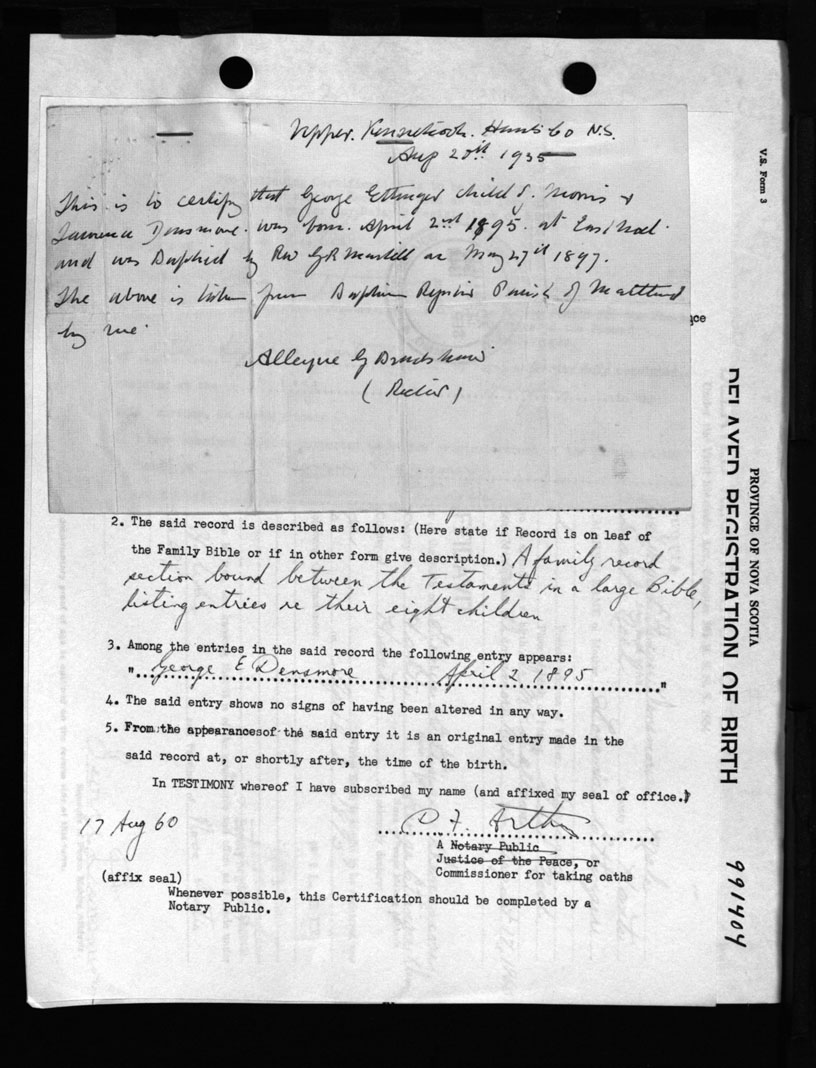 Upper Kennetcook. Hants Co N.S.
Aug 20th 1935
This is to certify that George Ettinger child of Morris &
Densmore. was born. April 2nd 1895. at
and was Baptised by Rev G R Martell on May 27th 1897.
The above is taken from Baptism Register Parish of Maitland
by me
Alleyne G Bradshaw
(Rector)
2. The said record is described as follows: (Here state if Record is on leaf of
the Family Bible or if in other form give description.) A family record
section bound between the Testaments in a large Bible,
listing entries re their eight children
3. Among the entries in the said record the following entry appears:
"George E Densmore April 2 1895"
4. The said entry shows no signs of having been altered in any way.
5. From the appearances of the said entry it is an original entry made in the
said record at, or shortly after, the time of the birth.
In TESTIMONY whereof I have subscribed my name (and affixed my seal of office.)
17 Aug 60
A Notary Public
Justice of the Peace, or
Commissioner for taking oaths
(affix seal)
Whenever possible, this Certification should be completed by a
Notary Public.
V.S. Form 3
PROVINCE OF NOVA SCOTIA
DELAYED REGISTRATION OF BIRTH
991404